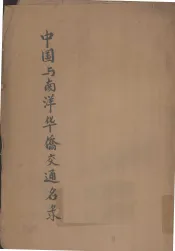 中国与南洋华侨交通名录